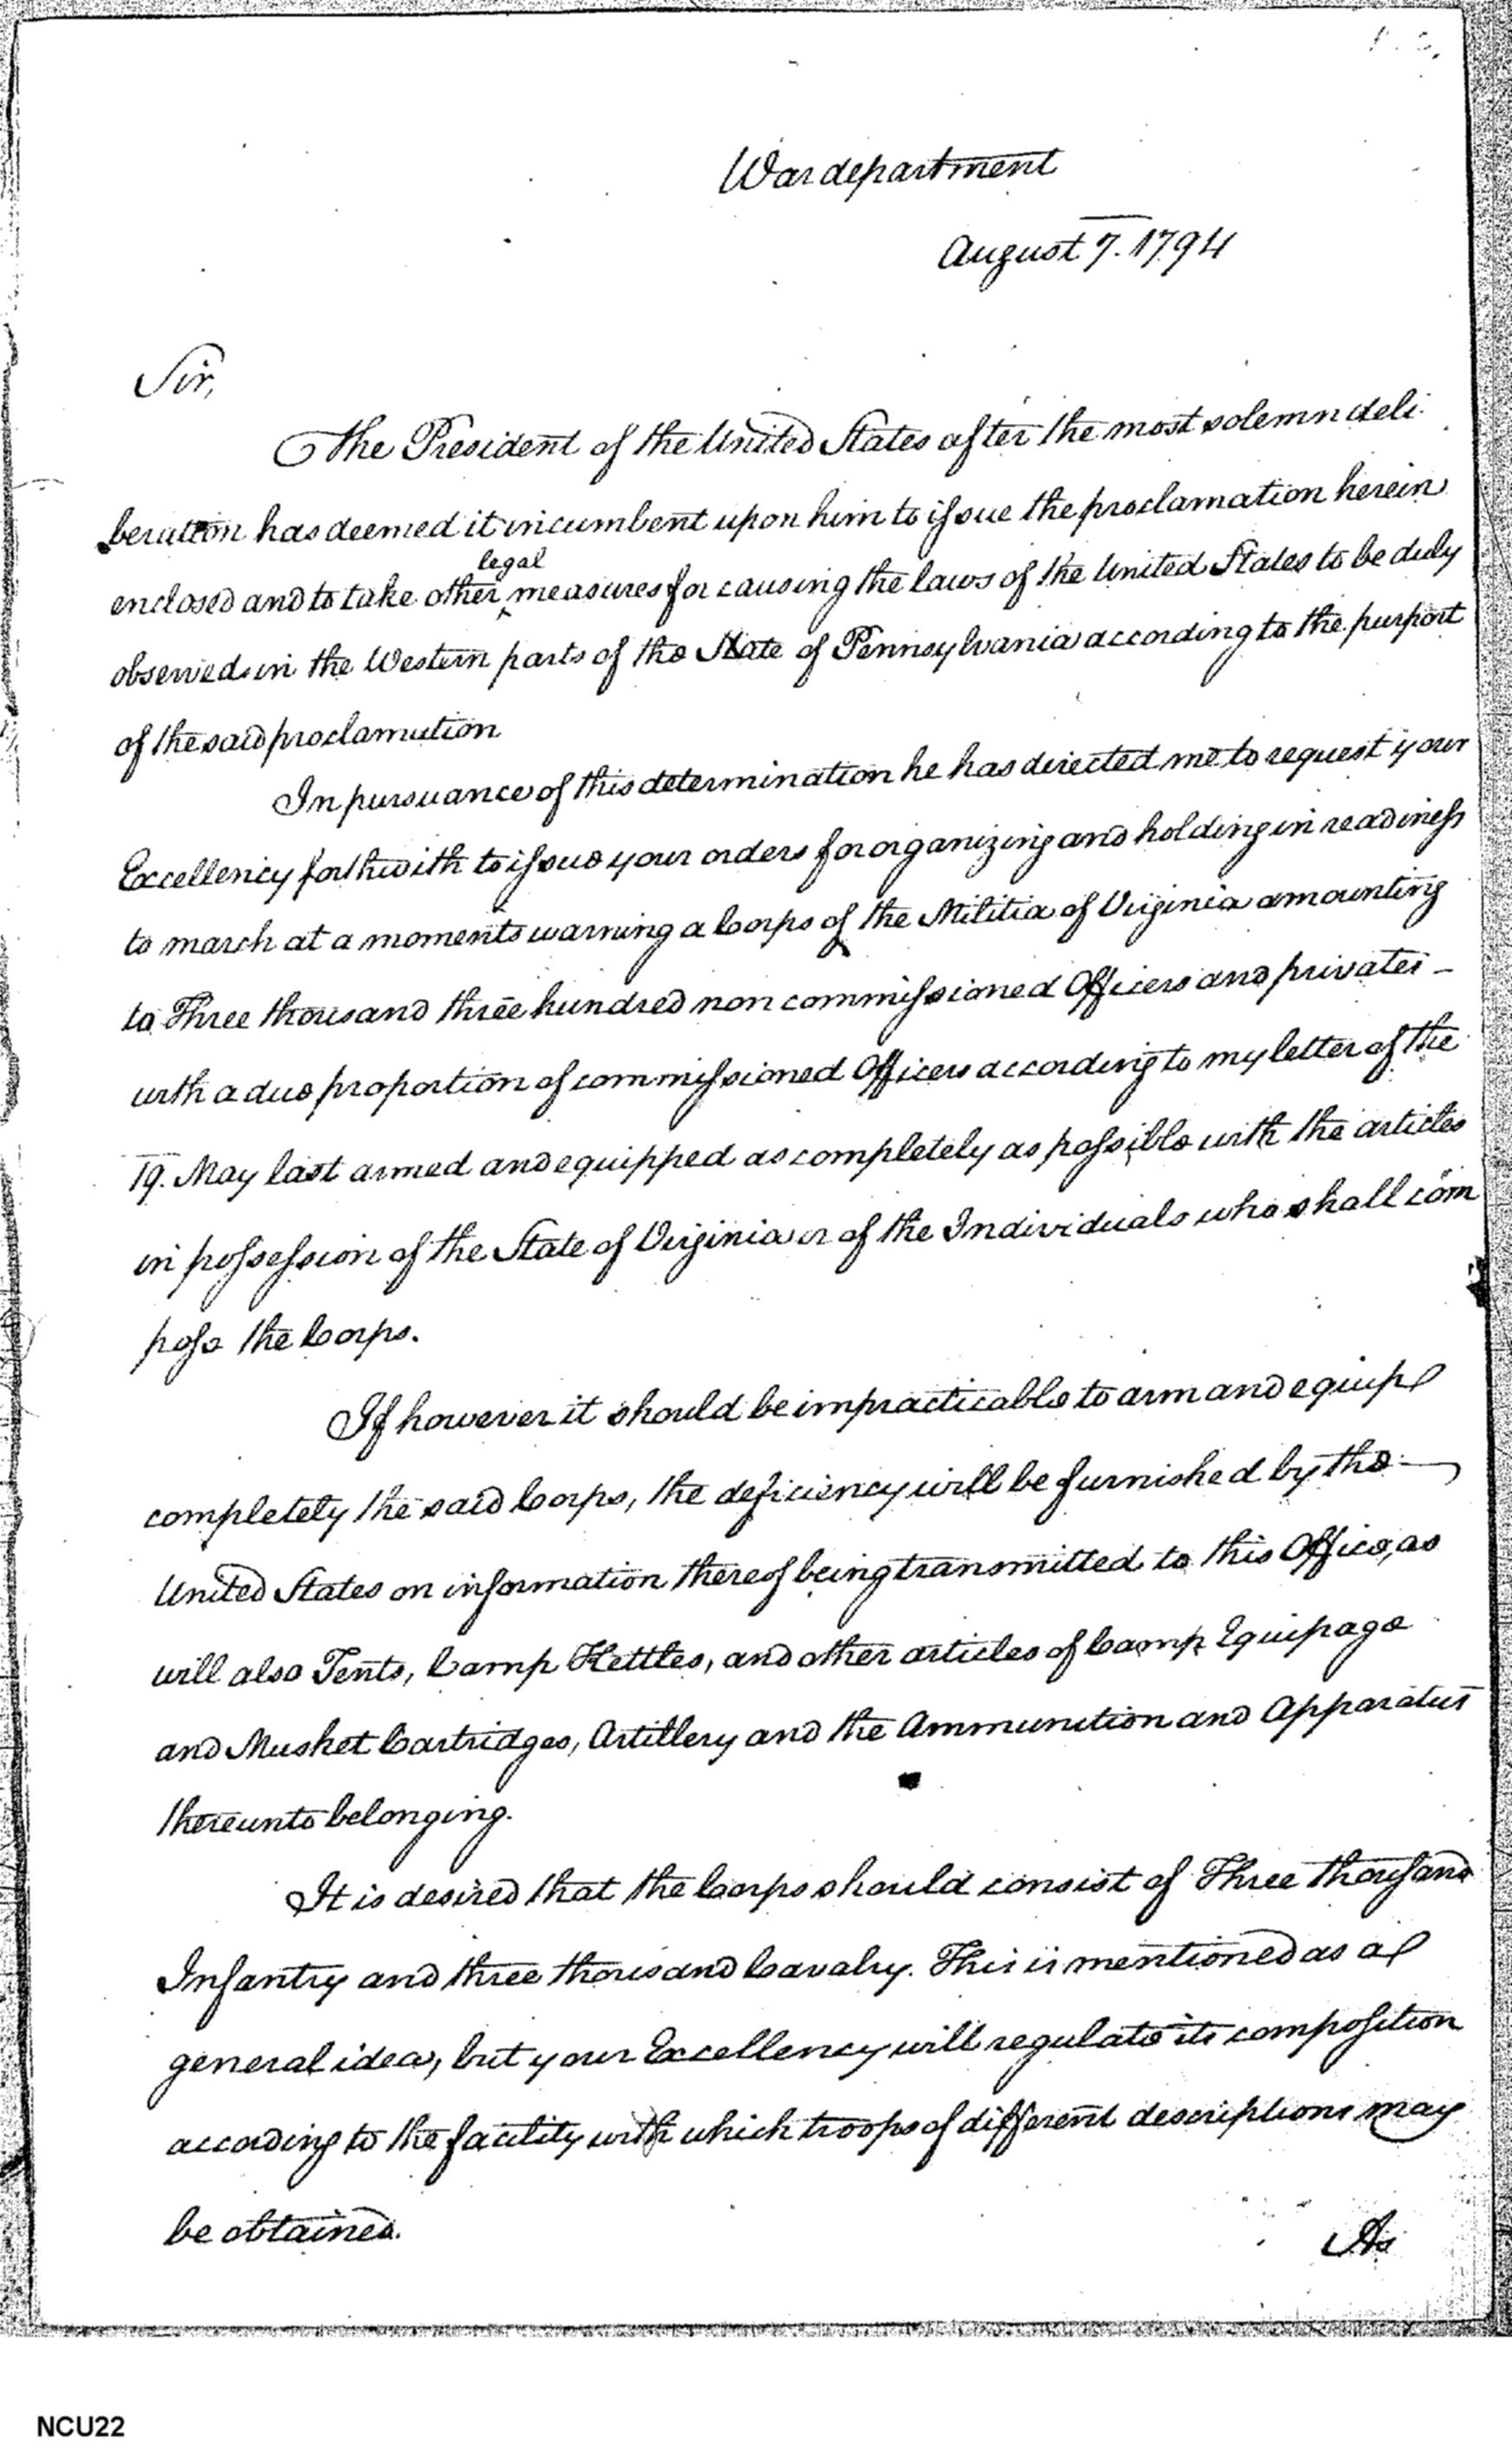 War department
August 7. 1794
Sir,
The President of the United States after the most solemn deli
beration has deemed it incumbent upon him to issue the proclamation herein
legal
enclosed and to take other ‸ measures for causing the laws of the United States to be duly
observed in the Western parts of the State of Pennsylvania according to the purport
of the said proclamation
In pursuance of this determination he has directed me to request your
Excellency forthwith to issue your orders for organizing and holding in readiness
to march at a moments warning a Corps of the Militia of Virginia amounting
to Three thousand three hundred non commissioned Officers and privates -
with a due proportion of commissioned Officers according to my letter of the
19. May last armed and equipped as completely as possible with the articles
in possession of the State of Virginia or of the Individuals who shall com
pose the Corps.
If however it should be impracticable to arm and equip
completely the said Corps, the deficiency will be furnished by the —
United States on information thereof being transmitted to this Office, as
will also Tents, Camp Kettles, and other articles of Camp Equipage
and Musket Cartridges, Artillery and the Ammunition and Apparatus
thereunto belonging.
It is desired that the Corps should consist of Three thousand
Infantry and three thousand Cavalry. This is mentioned as a
general idea, but your Excellency will regulate its composition
according to the facility with which troops of different descriptions may
be obtained.
As
NCU22